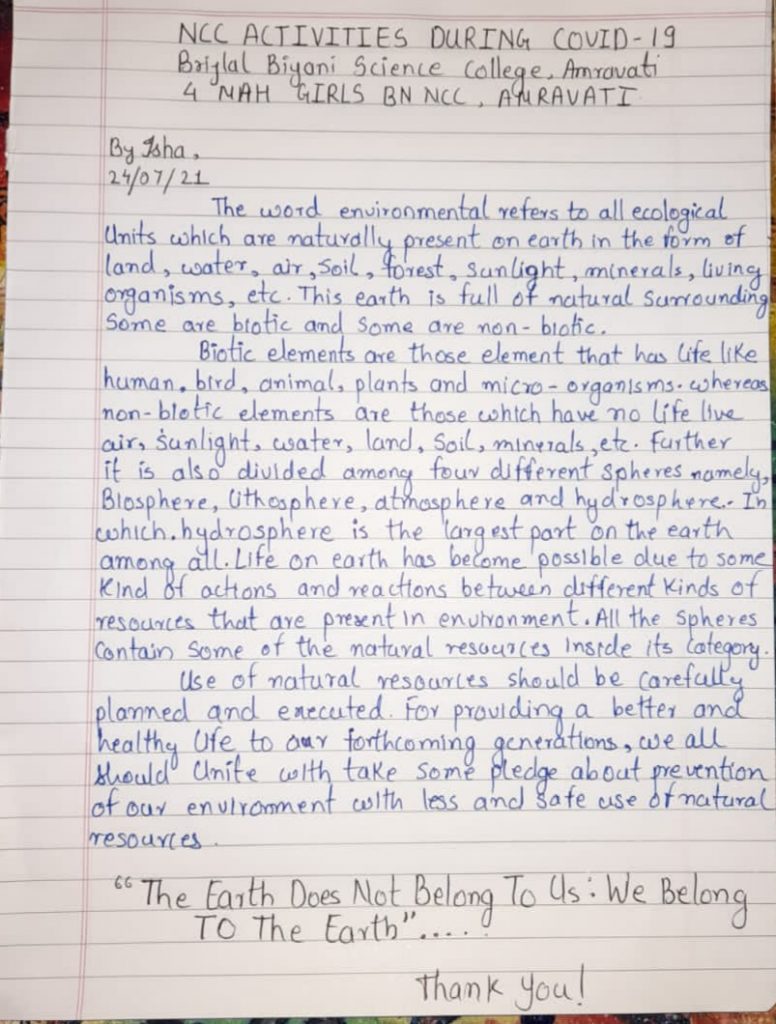 NCC ACTIVITIES DURING COVID-19
Brijlal Biyani Science College, Amravati
4 MAH GIRLS BN NCC, AMRAVATI
By Isha,
24/07/21
The word environmental refers to all ecological
Units which are naturally present on earth in the form of
land, water, air, soil, forest, sunlight, minerals, living
organisms, etc. This earth is full of natural surrounding
Some are biotic and some are non-biotic.
Biotic elements are those element that has life like
human, bird, animal, plants and micro-organisms. whereas
non-biotic elements are those which have no life live
air, sunlight, water, land, soil, minerals, etc. further
it is also divided among four different spheres namely,
Biosphere, lithosphere, atmosphere and hydrosphere.. In
which.hydrosphere is the largest part on the earth
among all. Life on earth has become possible due to some
kind of actions and reactions between different kinds of
resources that are present in environment. All the spheres
contain some of the natural resources inside its category.
Use of natural resources should be carefully
planned and executed. For providing a better and
healthy life to our forthcoming generations, we all
should Unite with take some pledge about prevention
of our environment with less and safe use of natural
resources.
“The Earth Does Not Belong To Us: We Belong
TO The Earth”.....
Thank You!